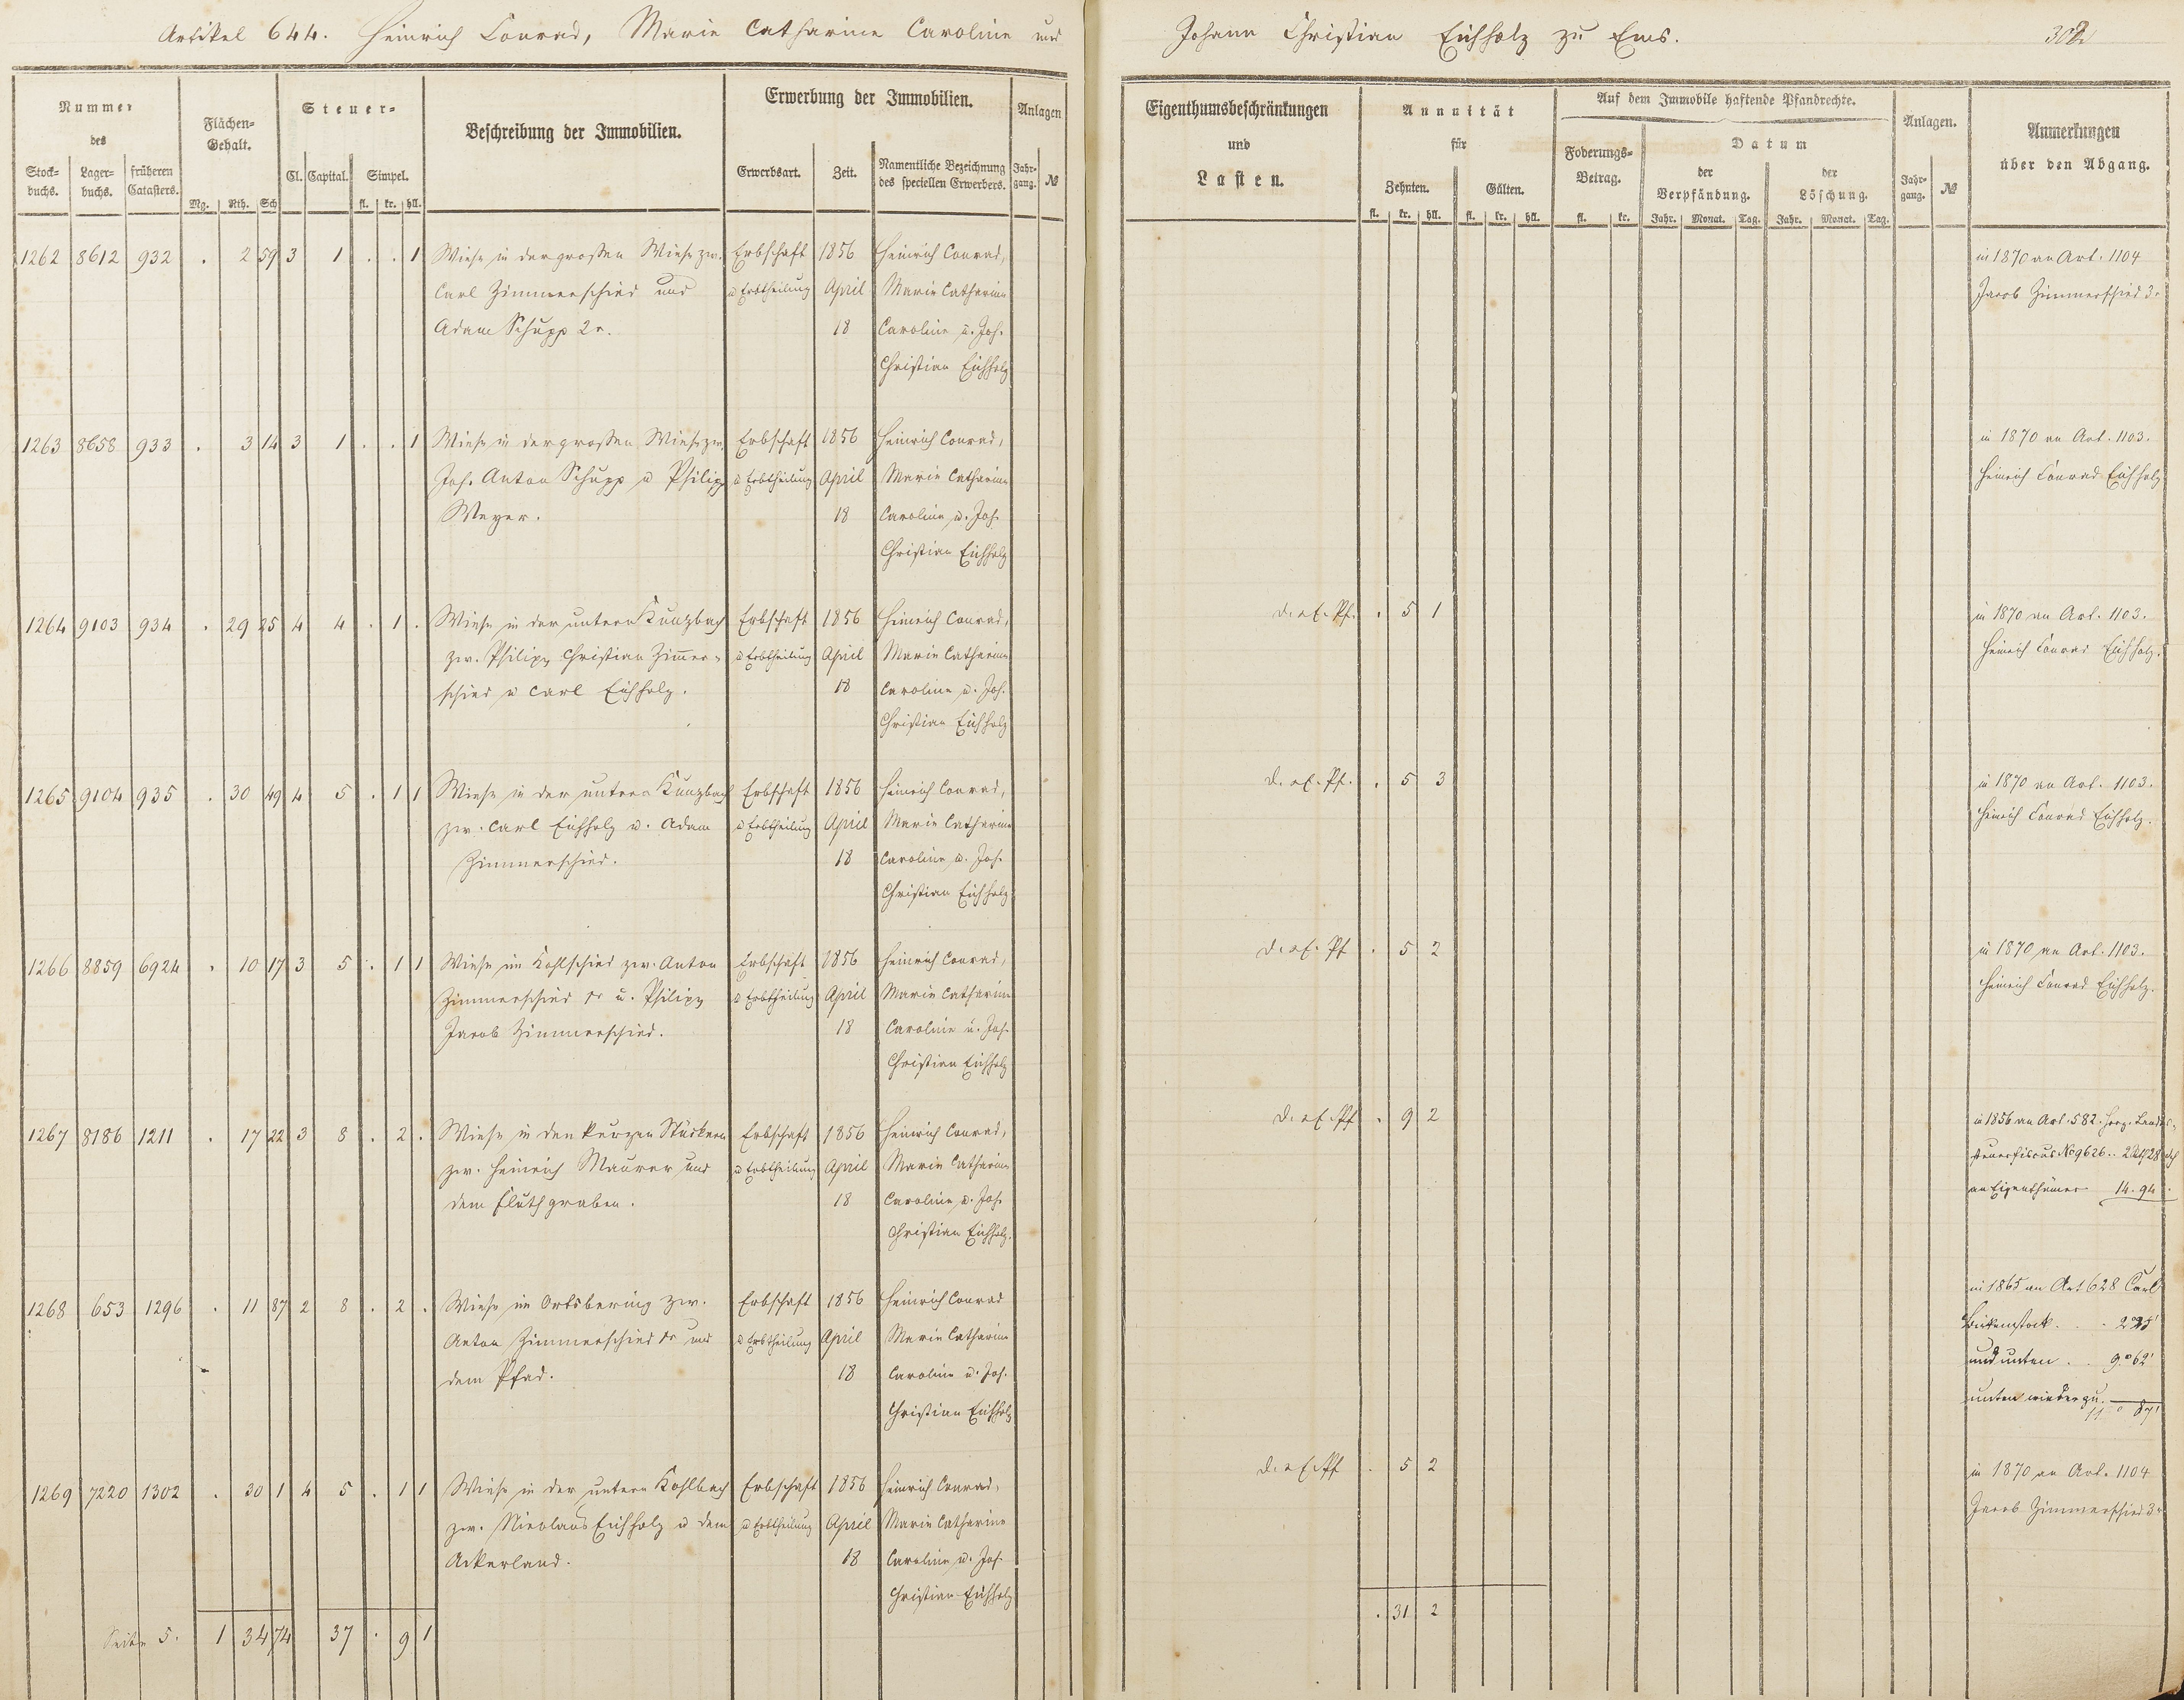 Artikel 644. Heinrich Conrad, Marie Catharine Caroline und
Johann Christian Eichholz zu Ems.
Nummer
des
Stock-
buchs.
Lager-
buchs.
früheren
Catasters.
Flächen-
Gehalt.
Mg. Rth. Sch
Steuer-
Cl. Capital. Simpel.
fl. kr. hll.
Beschreibung der Immobilien.
Erwerbung der Immobilien.
Erwerbsart. Zeit.
Namentliche Bezeichnung
des speciellen Erwerbers.
Anlagen
Jahr-
gang. №
Eigenthumsbeschränkungen
und
Lasten.
Annuität
für
Zehnten. Gülten.
fl. kr. hll. fl. kr. hll.
Auf dem Immobile haftende Pfandrechte.
Foderungs-
Betrag.
fl. kr.
Datum
der
Verpfändung.
Jahr. Monat. Tag.
der
Löschung.
Jahr. Monat. Tag.
Anlagen.
Jahr-
gang. №
Anmerkungen
über den Abgang.
1262 8612 932 . 2 59 3 1 . . 1 Wiese in der großen Wiese zw. Erbschaft 1856 Heinrich Conrad, in 1870 an Art. 1104
Carl Zimmerschied und u Erbtheilung April Marie Catharine Jacob Zimmerschied 3r
Adam Schupp 2r. 18 Caroline u. Joh.
Christian Eichholz
1263 8658 933 . 3 14 3 1 . . 1 Wiese in der großen Wiese zw. Erbschaft 1856 Heinrich Conrad, in 1870 an Art. 1103.
Joh. Anton Schupp u Philipp u Erbtheilung April Marie Catharine Heinrich Conrad Eichholz
Weyer. 18 Caroline u. Joh.
Christian Eichholz
1264 9103 934 . 29 25 4 4 . 1 . Wiese in der untern Kunzbach Erbschaft 1856 Heinrich Conrad, d. rf. Pf. . 5 1 in 1870 an Art. 1103.
zw. Philipp Christian Zimer- u Erbtheilung April Marie Catharine Heinrich Conrad Eichholz.
schied u Carl Eichholz. 18 Caroline u. Joh.
Christian Eichholz
1265 9104 935 . 30 49 4 5 . 1 1 Wiese in der untern Kunzbach Erbschaft 1856 Heinrich Conrad, d. rf. Pf. . 5 3 in 1870 an Art. 1103.
zw. Carl Eichholz u. Adam u Erbtheilung April Marie Catharine Heinrich Conrad Eichholz.
Zimmerschied. 18 Caroline u. Joh.
Christian Eichholz
1266 8859 6924 . 10 17 3 5 . 1 1 Wiese im Kohlschied zw. Anton Erbschaft 1856 Heinrich Conrad, d. rf. Pf . 5 2 in 1870 an Art. 1103.
Zimmerschied u. Philipp u Erbtheilung April Marie Catharine Heinrich Conrad Eichholz.
Jacob Zimmerschied. 18 Caroline u. Joh.
Christian Eichholz
1267 8186 1211 . 17 22 3 8 . 2 . Wiese in den kurzen Stücken Erbschaft 1856 Heinrich Conrad, d. rf. Pf . 9 2 in 1856 an Art. 582. Herz. Landes-
zw. Heinrich Maurer und u Erbtheilung April Marie Catharine steuerfiscus No 9626.. 2 Rth 28 Sch
dem Fluthgraben. 18 Caroline u. Joh. an Eigenthümer 14. 94
Christian Eichholz.
1268 653 1296 . 11 87 2 8 . 2 . Wiese im Ortsbering zw. Erbschaft 1856 Heinrich Conrad in 1865 an Art 628 Carl
Anton Zimmerschied und u Erbtheilung April Marie Catharine Birkenstock . . 2° 25'
dem Pfad. 18 Caroline u. Joh. und unten . . 9.° 62'
Christian Eichholz unten wieder zu. 11 ° 87'
1269 7220 1302 . 30 1 4 5 . 1 1 Wiese in der untern Kohlbach Erbschaft 1856 Heinrich Conrad, d. rf. Pf . 5 2 in 1870 an Art. 1104
zw. Nicolaus Eichholz u dem u Erbtheilung April Marie Catharine Jacob Zimmerschied 3r
Ackerland. 18 Caroline u. Joh.
Christian Eichholz
Seite 5. 1 34 74 37 . 9 1 . 31 2